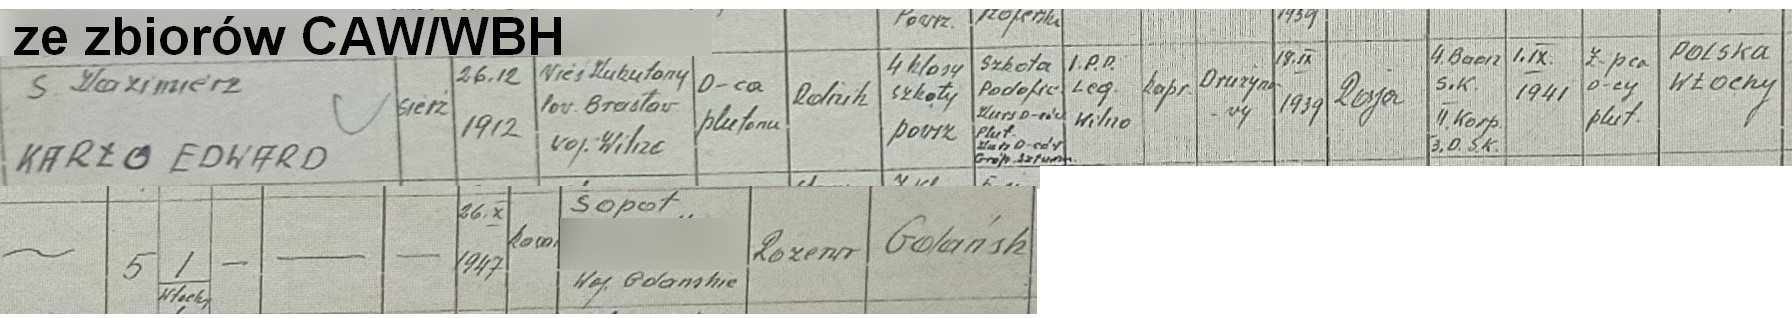 ze zbiorów CAW/WBH
Powrz. Koperska 1939
S. Kazimierz
KARŁO EDWARD
sierż
26.12
1912
Wieś Kukutany
Pow. Brasław
woj. Wilno
D-ca
plutonu
Rolnik
4 klasy
szkoły
powrz
Szkoła
Podofic
Kurs D-ców
Plut.
Kurs D-cdy
Grup. Szturm.
1.P.P.
Leg.
Wilno
kapr.
Drużyno
-wy
18.IX
1939
Rosja
4. Baon
S.K.
II. Korp.
3.D.S.K.
1.IX.
1941
Z-pca
D-cy
plut.
POLSKA
WŁOCHY
5
1
Włochy
26.X
1947
kawa.
Sopot
Woj. Gdanskie
Rozenw
Gdańsk